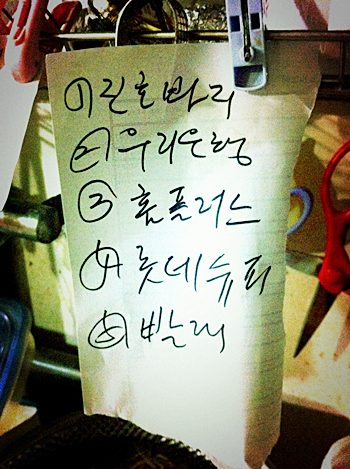 ① 린호빠리
② 우리은행
③ 홈플러스
④ 롯데슈퍼
⑤ 빨래